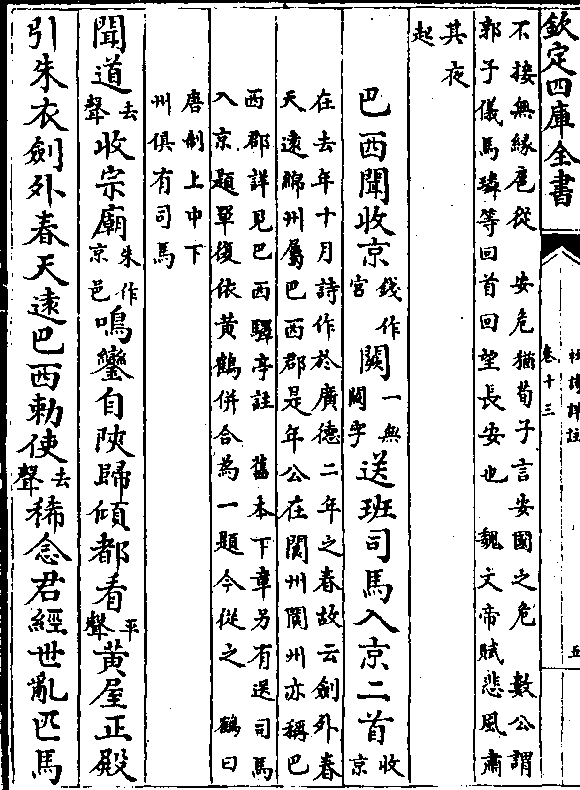 欽定四庫全書
杜詩詳註
卷十三
五
不接無緣扈從 安危猶荀子言安國之危 數公謂
郭子儀馬璘等回首回望長安也 魏文帝賦悲風肅
其夜
起
巴西聞收京錢作宮闕一無闕字送班司馬入京二首收京
在去年十月詩作於廣德二年之春故云劍外春
天遠綿州屬巴西郡是年公在閬州閬州亦稱巴
西郡詳見巴西驛亭註 舊本下章另有送司馬
入京題單復依黃鶴併合為一題今從之 鶴曰
唐制上中下
州俱有司馬
聞道去聲收宗廟朱作京邑鳴鑾自陝歸傾都看平聲黃屋正殿
引朱衣劍外春天遠巴西勅使去聲稀念君經世亂匹馬